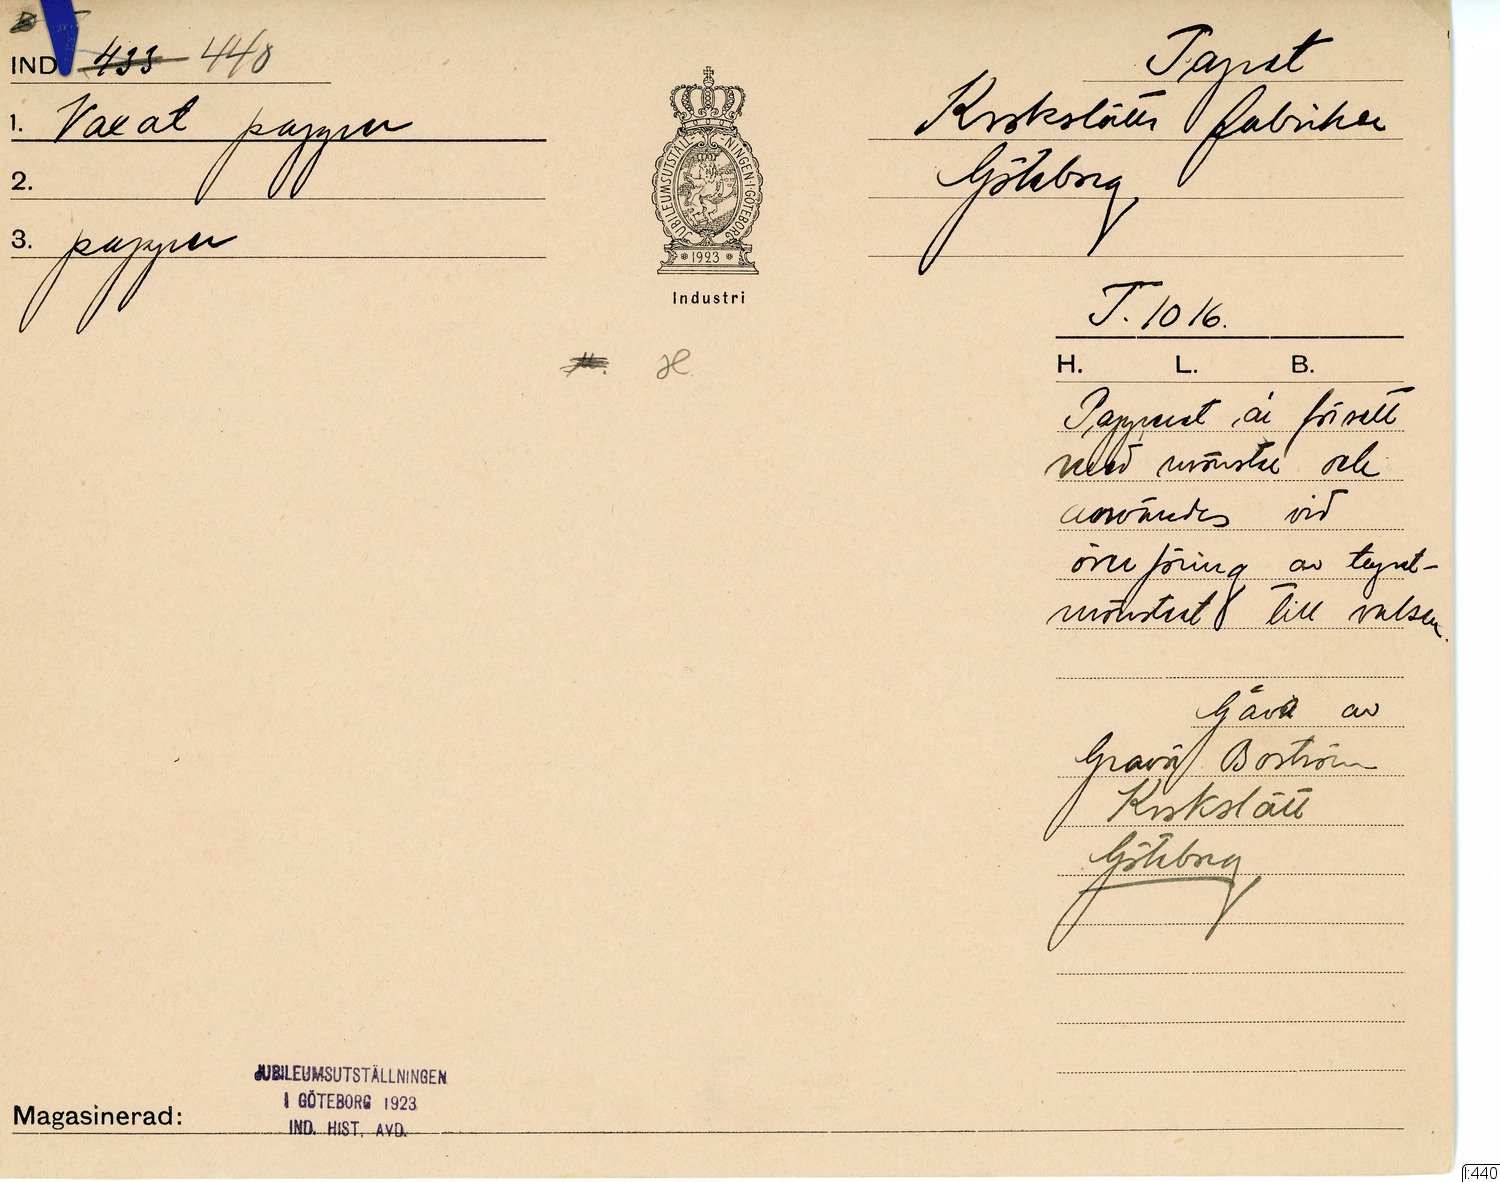 IND 433 440
1. Vaxat papper
2.
3. papper
JUBILEUMSUTSTÄLLNINGEN I GÖTEBORG
1923
Industri
H.
Tapet
Krokslätts fabriker
Göteborg
T. 1016.
H. L. B.
Papperet är försett
med mönster och
användes vid
överföring av tapet-
mönstret till valsen.
Gåva av
Gravör Boström
Krokslätt
Göteborg
JUBILEUMSUTSTÄLLNINGEN
I GÖTEBORG 1923
IND. HIST. AVD.
Magasinerad:
I:440